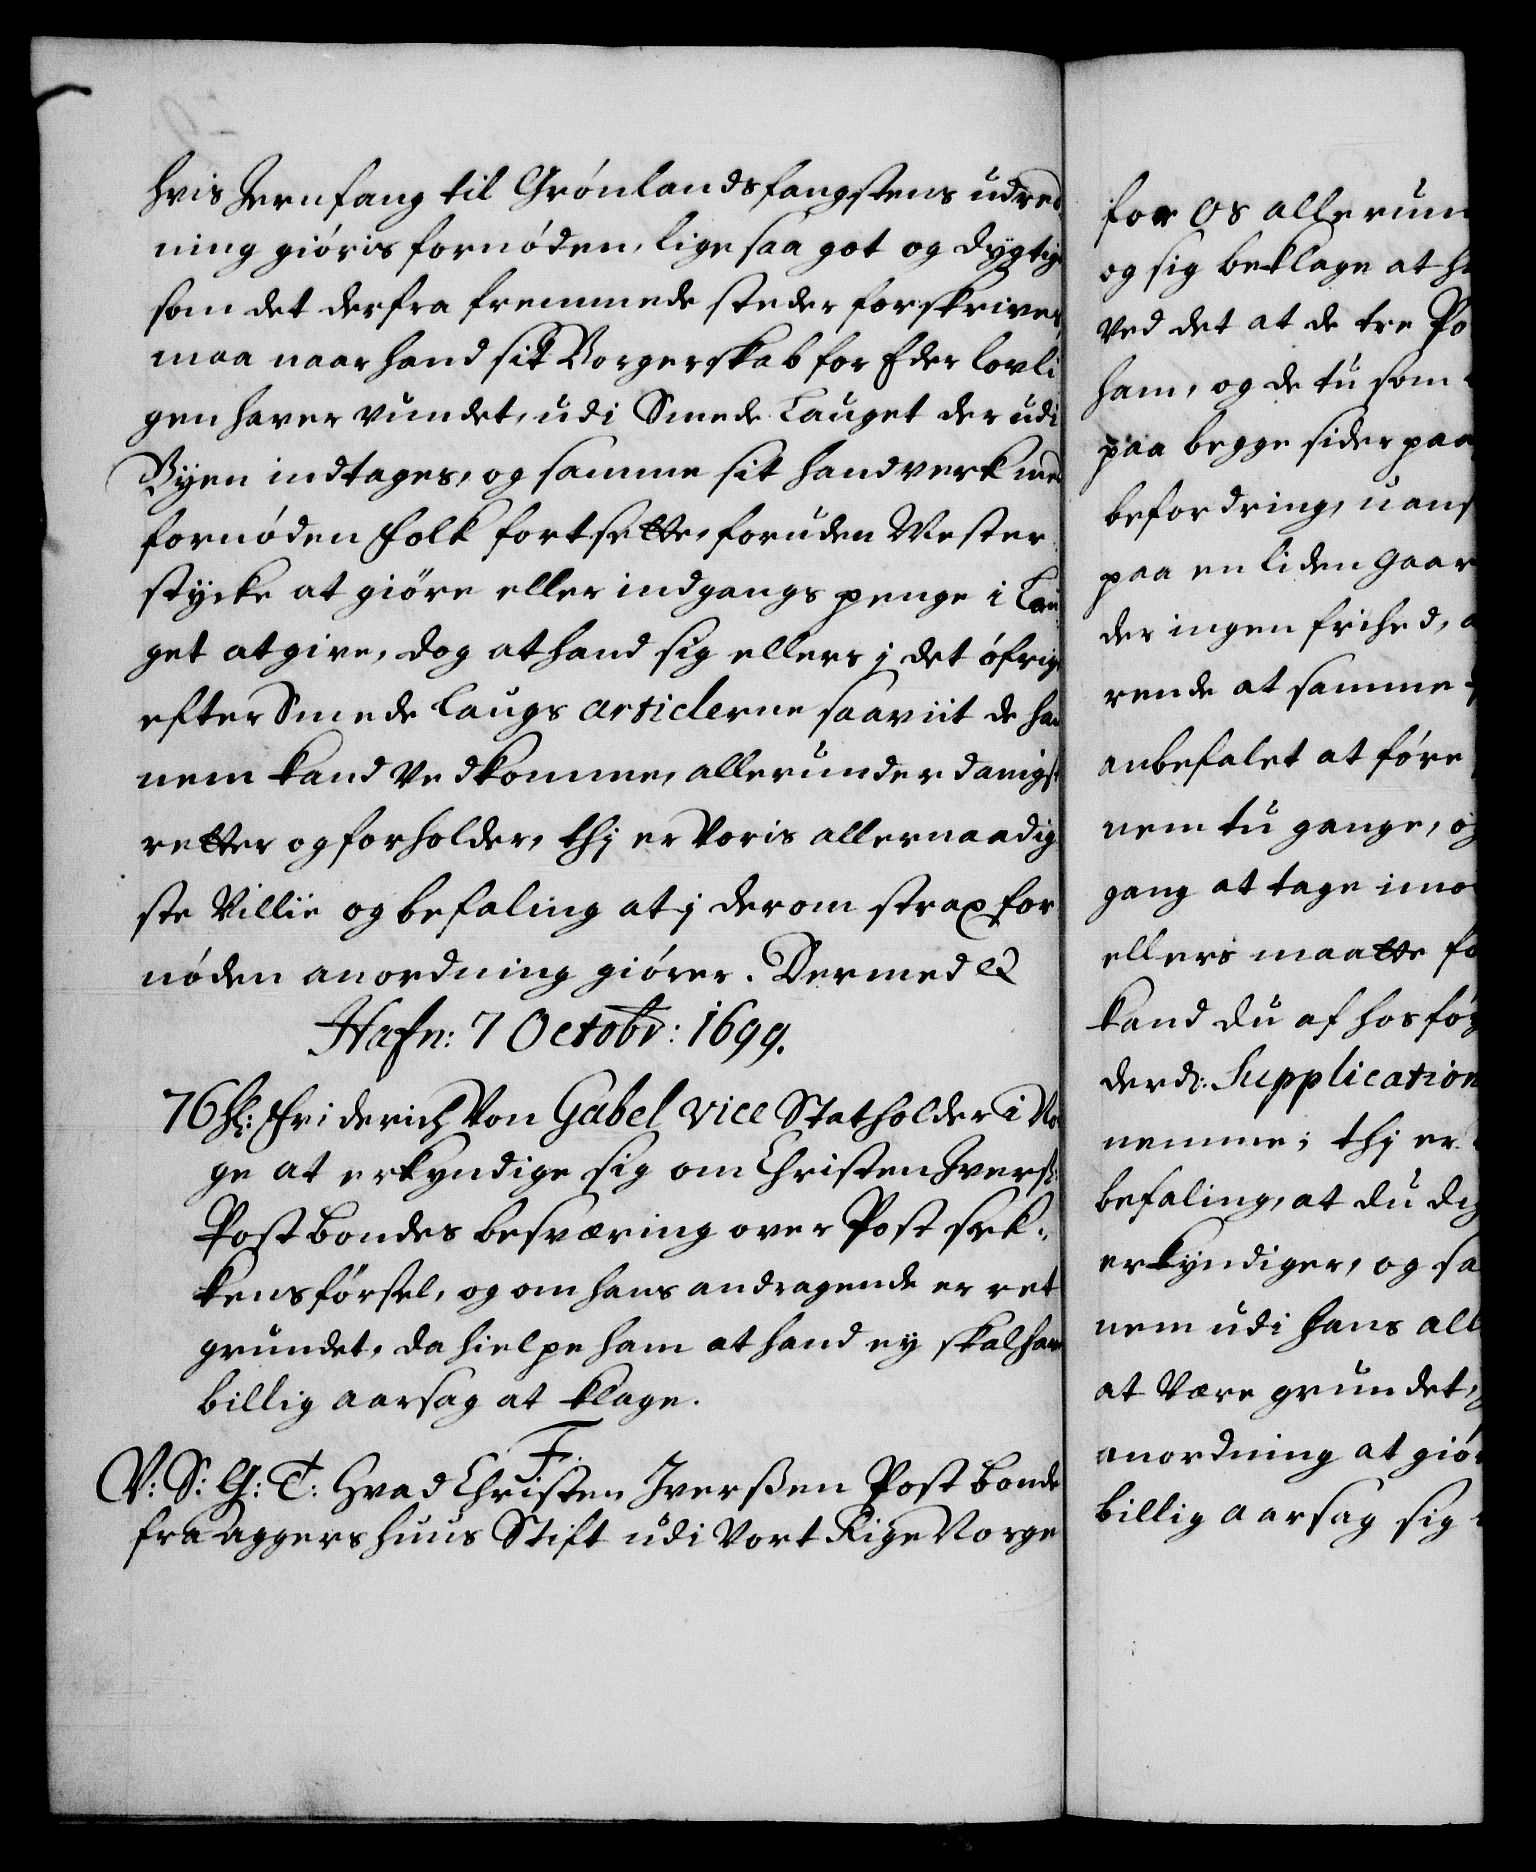 hvis Jernfang til Grønlandsfangstens udred-
ning giøris fornøden, lige saa got og dygtig
som det derfra fremmede steder forskrives
maa naar hand sit Borgerskab for Eder lovli
gen haver vundet, udi Smede Lauget der udi
Byen indtages, og samme sit handverk med
fornøden Folk fortsette, foruden Mester
stycke at giøre eller indgangs penge i Lau
get at give, dog at hand sig ellers i det øfrig
efter Smede Laugs Articlerne saaviit de han
nem kand vedkomme, allerunderdanigst
retter og forholder, thj er Voris allernaadig
ste Villie og befaling at j derom strax for
nøden anordning giører. Dermed &
Hafn: 7 Octobr: 1699.
76 Hr: Friderich Von Gabel Vice Statholder i Nor
ge at erkyndige sig om Christen Iverss:
Postbondes besværing over Post sek-
kens førsel, og om hans andragende er ret
grundet, da hielpe ham at hand ey skal have
billig aarsag at klage.
F.
V: S: G: T: Hvad Christen Iverssen Postbonde
fra Aggershuus Stift udi Vort Rige Norge
for Os allerun
og sig beklage at h
ved det at de tre Po
ham, og de tu som
paa begge sider paa
befordring, uans
paa en liden Gaar
der ingen frihed,
rende at samme
anbefalet at føre
nem tu gange, og
gang at tage imo
ellers maatte fo
kand du af hosføy
derd: Supplication
nemme; thj er
befaling, at du dig
erkyndiger, og sa
nem udi hans all
at være grundet,
anordning at giør
billig aarsag sig